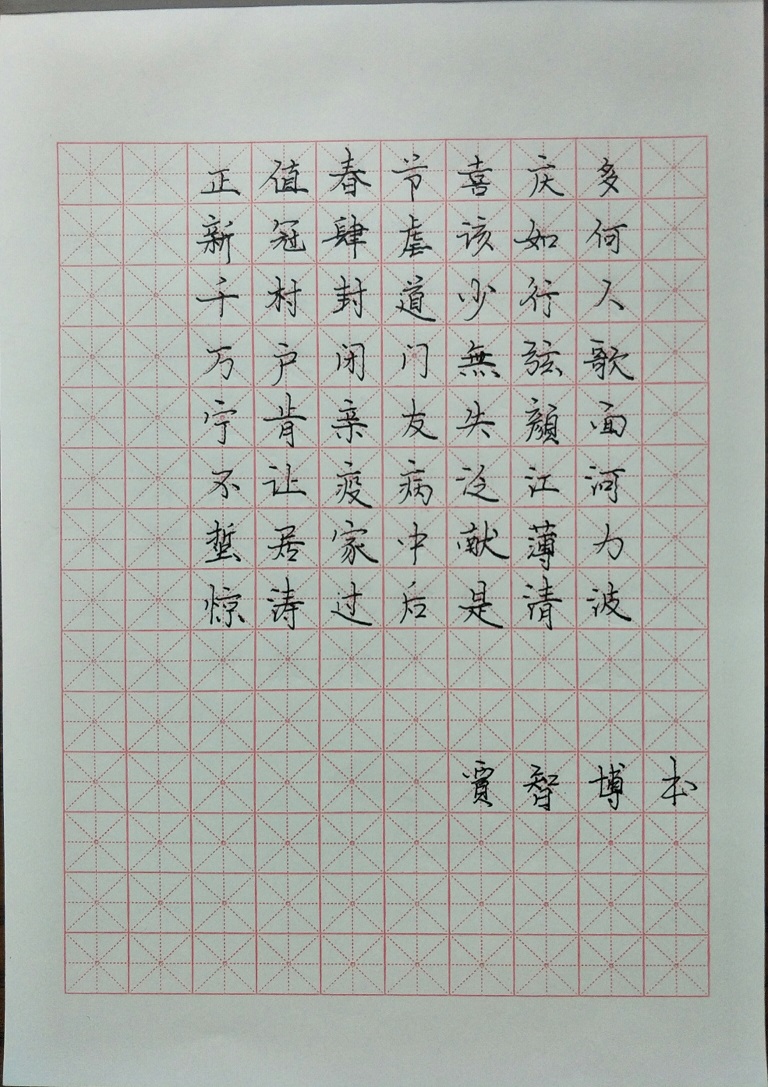 正值春节喜庆多
新冠肆虐该如何
千村封道少行人
万户闭门無弦歌
宁肯亲友失颜面
不让疫病泛江河
蜇居家中献薄力
惊涛过后是清波
贾智博书